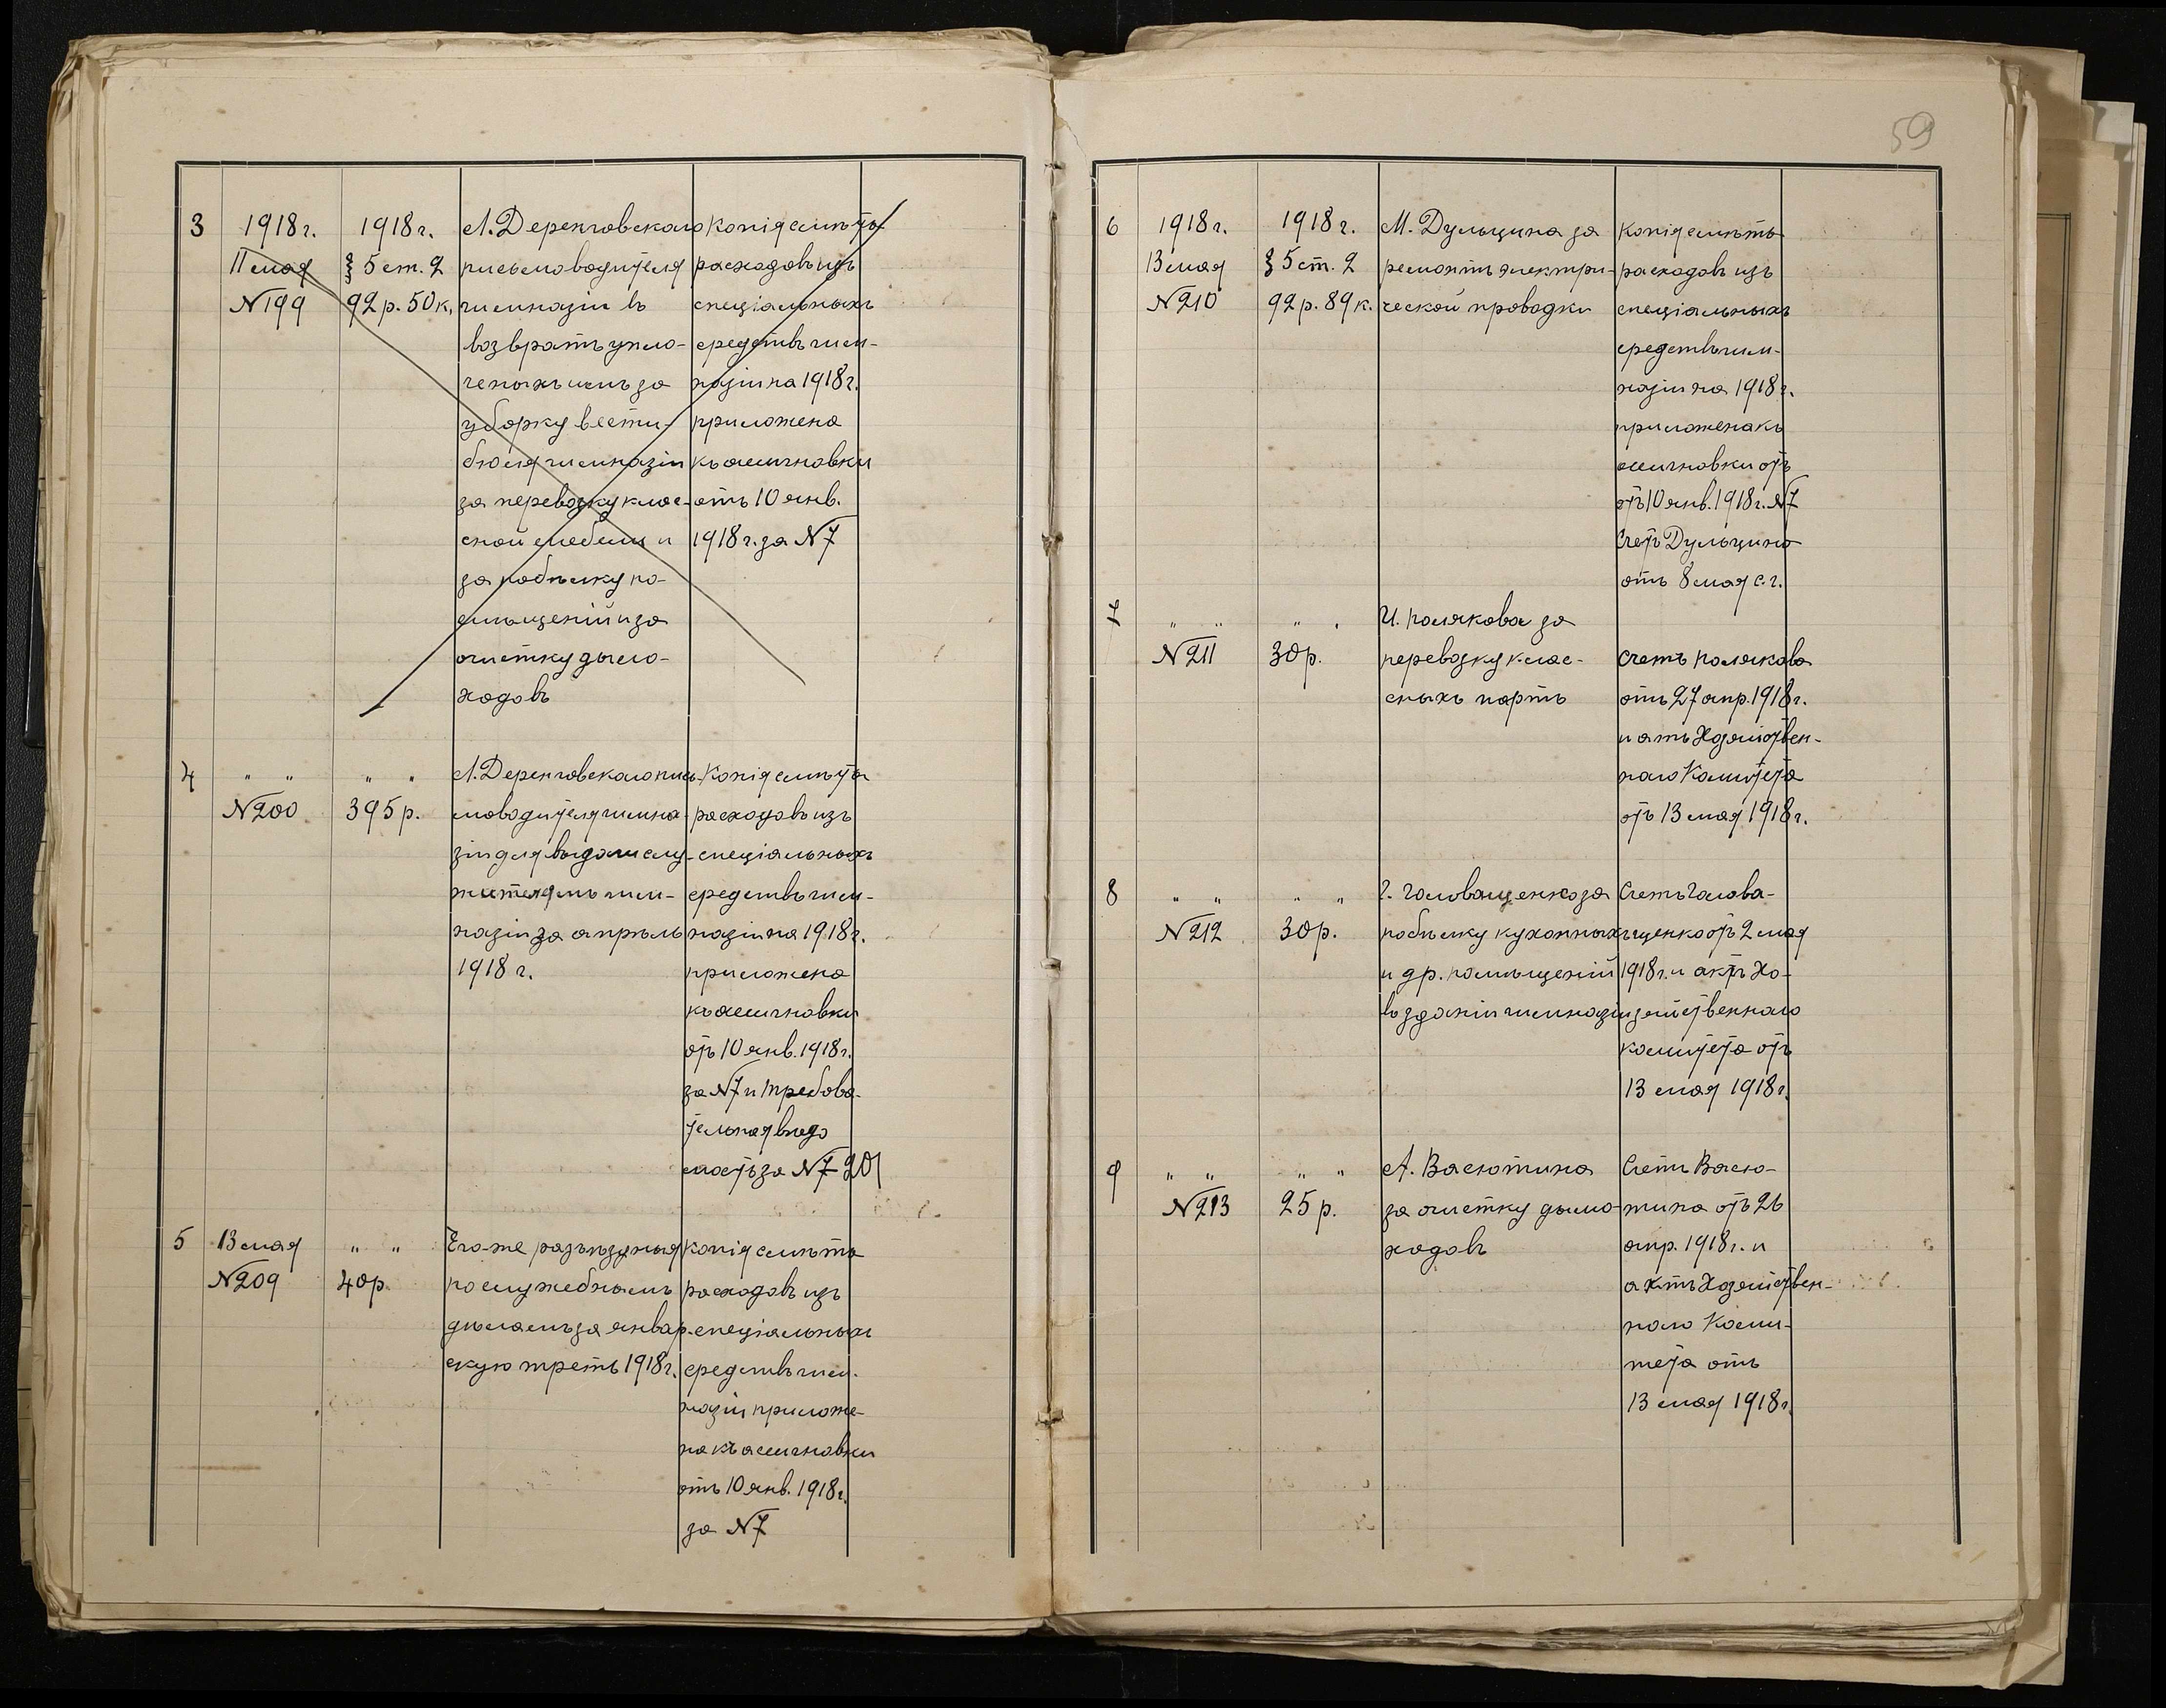 59
3
1918 г.
11 мая
№ 199
1918 г.
§ 5 ст. 2
92 р. 50 к.
Л. Деренговскаго
письмоводителя
гимназіи въ
возвратъ упло-
ченыхъ имъ за
уборку вести-
бюля гимназіи
за перевозку клас-
сной мебели и
за побѣлку по-
мѣщеній и за
очистку дымо-
ходовъ
Копія смѣты
расходовъ изъ
спеціальныхъ
средствъ гим-
назіи на 1918 г.
приложена
къ ассигновки
отъ 10 янв.
1918 г. за № 7
4
" "
№ 200
" "
395 р.
Л. Деренговскаго пись-
моводителя гимна-
зіи для выдачи слу-
жителямъ гим-
назіи за апрѣль
1918 г.
Копія смѣта
расходовъ изъ
спеціальныхъ
средствъ гим-
назіи на 1918 г.
приложена
къ ассигновки
отъ 10 янв. 1918 г.
за № 7 и требова-
тельная вѣдо
мость за № 7 201
5
13 мая
№ 209
" "
40 р.
Его-же разъѣздныя
по служебнымъ
дѣламъ за январ-
скую треть 1918 г.
Копія смѣта
расходовъ изъ
спеціальныхъ
средствъ гим-
назіи приложе-
на къ ассигновки
отъ 10 янв. 1918 г.
за № 7
6
1918 г.
13 мая
№ 210
1918 г.
§ 5 ст. 2
92 р. 89 к.
М. Дульцина за
ремонтъ электри-
ческой проводки
Копія смѣты
расходовъ изъ
спеціальныхъ
средствъ гим-
назіи на 1918 г.
приложена къ
ассигновки отъ
отъ 10 янв. 1918 г. № 7
Счетъ Дульцина
отъ 8 мая с. г.
7
" "
№ 211
" "
30 р.
И. Полякова за
перевозку клас-
сныхъ партъ
Счетъ Полякова
отъ 27 апр. 1918 г.
и атъ Хозяйствен-
наго Комитета
отъ 13 мая 1918 г.
8
" "
№ 212
" "
30 р.
Г. Головащенко за
побѣлку кухонныхъ
и др. помѣщеній
въ зданіи гимназіи
Счетъ Голова-
щенко отъ 2 мая
1918 г. и актъ Хо-
зяйственнаго
комитета отъ
13 мая 1918 г.
9
" "
№ 213
" "
25 р.
А. Васютина
за очистку дымо
ходовъ
Счетъ Васю-
тина отъ 26
апр. 1918 г. и
актъ Хозяйствен-
наго Коми-
тета отъ
13 мая 1918 г.